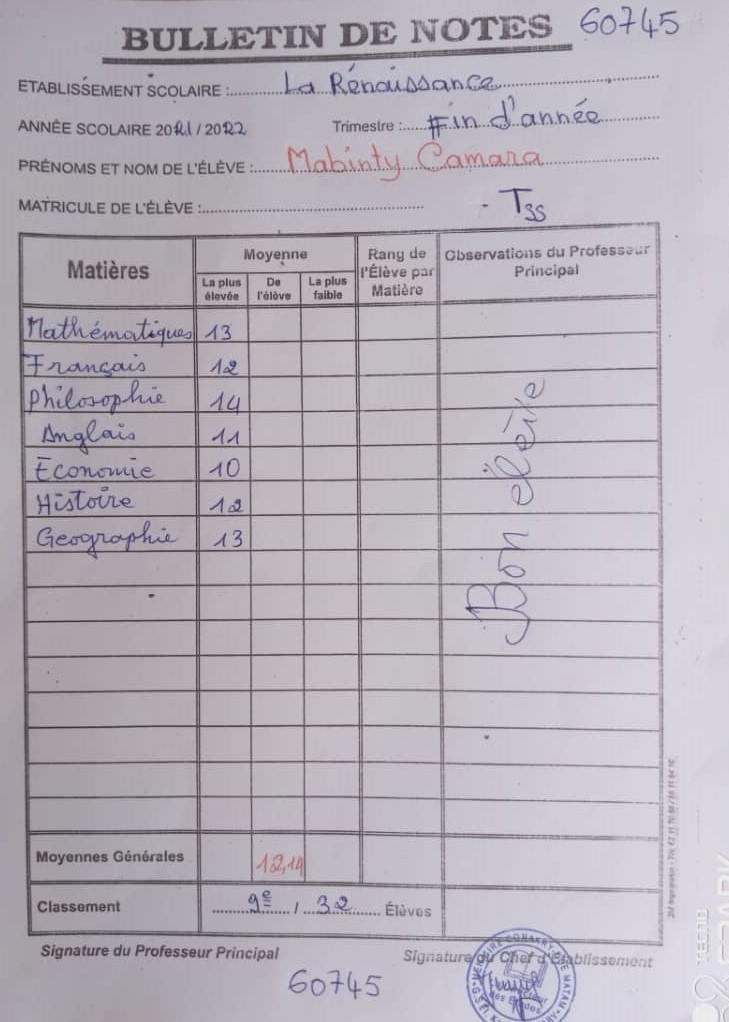 BULLETIN DE NOTES 60745
ETABLISSEMENT SCOLAIRE : La Rénaissance
ANNÉE SCOLAIRE 2021 / 2022 Trimestre : Fin d'année
PRÉNOMS ET NOM DE L'ÉLÈVE : Mabinty Camara
MATRICULE DE L'ÉLÈVE :
- TSS
Matières
Moyenne
La plus élevée
De l'élève
La plus faible
Rang de l'Élève par Matière
Observations du Professeur Principal
Mathématiques 13
Français 12
Philosophie 14
Anglais 11
Économie 10
Histoire 12
Geographie 13
Bon élève
Moyennes Générales 12,14
Classement 9e / 32 Élèves
Signature du Professeur Principal
Signature du Chef d'Établissement
60745
TECNO
SPARK